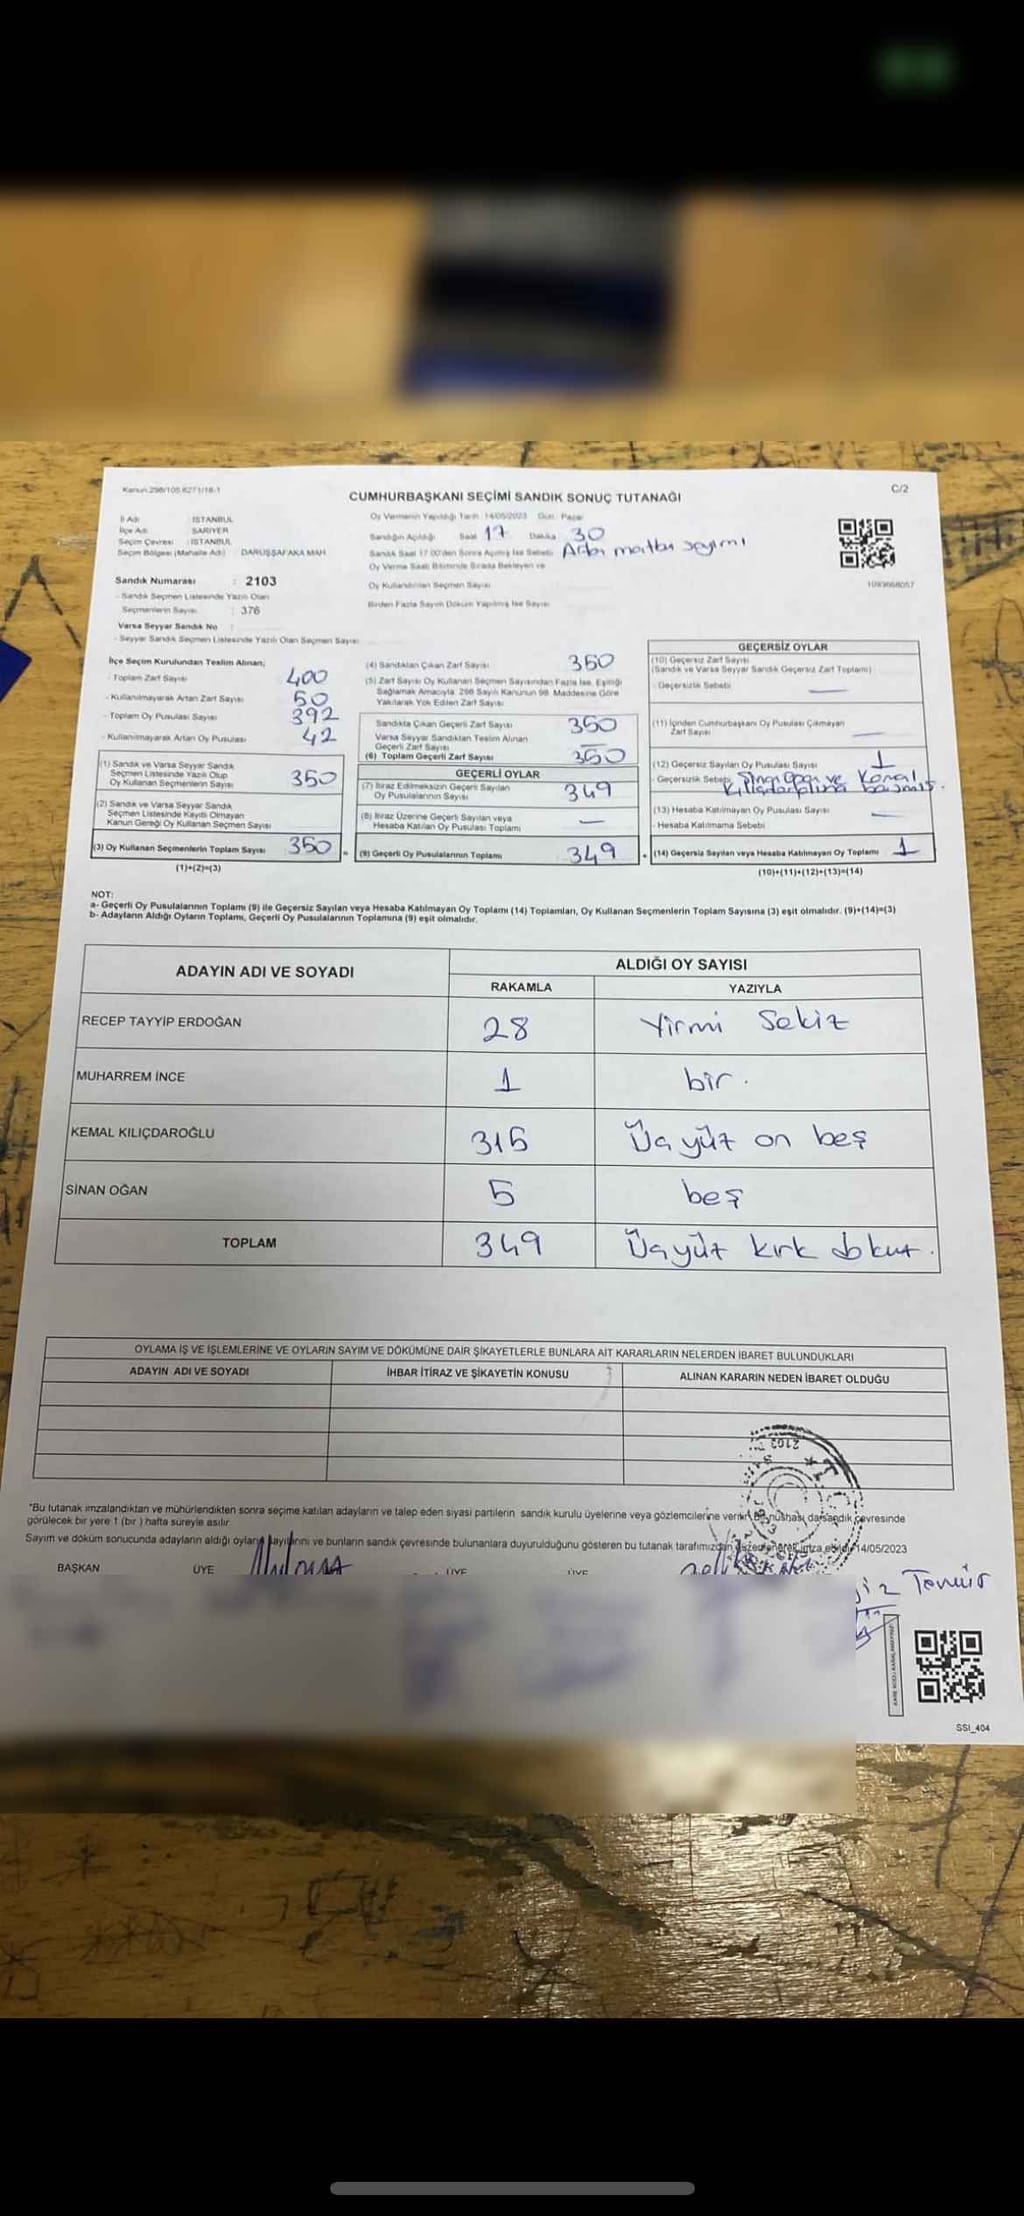 Kanun 298/105 6271/18-1
CUMHURBAŞKANI SEÇİMİ SANDIK SONUÇ TUTANAĞI
C/2
İl Adı : İSTANBUL
İlçe Adı : SARIYER
Seçim Çevresi : İSTANBUL
Seçim Bölgesi (Mahalle Adı) DARUŞŞAFAKA MAH
Sandık Numarası : 2103
- Sandık Seçmen Listesinde Yazılı Olan
Seçmenlerin Sayısı : 376
Varsa Seyyar Sandık No
- Seyyar Sandık Seçmen Listesinde Yazılı Olan Seçmen Sayısı
Oy Vermenin Yapıldığı Tarih 14/05/2023 Gün Pazar
Sandığın Açıldığı Saat 17 Dakika 30
Sandık Saat 17:00'den Sonra Açılmış İse Sebebi Artan matbu sayımı
Oy Verme Saati Bitiminde Sırada Bekleyen ve
Oy Kullandırılan Seçmen Sayısı
Birden Fazla Sayım Döküm Yapılmış İse Sayısı
1093668057
İlçe Seçim Kurulundan Teslim Alınan;
- Toplam Zarf Sayısı 400
- Kullanılmayarak Artan Zarf Sayısı 50
- Toplam Oy Pusulası Sayısı 392
- Kullanılmayarak Artan Oy Pusulası 42
(1) Sandık ve Varsa Seyyar Sandık
Seçmen Listesinde Yazılı Olup
Oy Kullanan Seçmenlerin Sayısı 350
(2) Sandık ve Varsa Seyyar Sandık
Seçmen Listesinde Kayıtlı Olmayan
Kanun Gereği Oy Kullanan Seçmen Sayısı
(3) Oy Kullanan Seçmenlerin Toplam Sayısı 350
(1)+(2)=(3)
(4) Sandıktan Çıkan Zarf Sayısı 350
(5) Zarf Sayısı Oy Kullanan Seçmen Sayısından Fazla İse, Eşitliği
Sağlamak Amacıyla 298 Sayılı Kanunun 98. Maddesine Göre
Yakılarak Yok Edilen Zarf Sayısı
Sandıkta Çıkan Geçerli Zarf Sayısı 350
Varsa Seyyar Sandıktan Teslim Alınan
Geçerli Zarf Sayısı —
(6) Toplam Geçerli Zarf Sayısı 350
GEÇERLİ OYLAR
(7) İtiraz Edilmeksizin Geçerli Sayılan
Oy Pusulalarının Sayısı 349
(8) İtiraz Üzerine Geçerli Sayılan veya
Hesaba Katılan Oy Pusulası Toplamı —
(9) Geçerli Oy Pusulalarının Toplamı 349
GEÇERSİZ OYLAR
(10) Geçersiz Zarf Sayısı
(Sandık ve Varsa Seyyar Sandık Geçersiz Zarf Toplamı)
- Geçersizlik Sebebi —
(11) İçinden Cumhurbaşkanı Oy Pusulası Çıkmayan
Zarf Sayısı —
(12) Geçersiz Sayılan Oy Pusulası Sayısı 1
- Geçersizlik Sebebi Sinan Oğan ve Kemal
Kılıçdaroğluna basılmış.
(13) Hesaba Katılmayan Oy Pusulası Sayısı —
- Hesaba Katılmama Sebebi
(14) Geçersiz Sayılan veya Hesaba Katılmayan Oy Toplamı 1
(10)+(11)+(12)+(13)=(14)
NOT:
a- Geçerli Oy Pusulalarının Toplamı (9) ile Geçersiz Sayılan veya Hesaba Katılmayan Oy Toplamı (14) Toplamları, Oy Kullanan Seçmenlerin Toplam Sayısına (3) eşit olmalıdır. (9)+(14)=(3)
b- Adayların Aldığı Oyların Toplamı, Geçerli Oy Pusulalarının Toplamına (9) eşit olmalıdır.
ADAYIN ADI VE SOYADI
ALDIĞI OY SAYISI
RAKAMLA YAZIYLA
RECEP TAYYİP ERDOĞAN 28 Yirmi Sekiz
MUHARREM İNCE 1 bir.
KEMAL KILIÇDAROĞLU 315 Üçyüz on beş
SİNAN OĞAN 5 beş
TOPLAM 349 Üçyüz kırk dokuz.
OYLAMA İŞ VE İŞLEMLERİNE VE OYLARIN SAYIM VE DÖKÜMÜNE DAİR ŞİKAYETLERLE BUNLARA AİT KARARLARIN NELERDEN İBARET BULUNDUKLARI
ADAYIN ADI VE SOYADI İHBAR İTİRAZ VE ŞİKAYETİN KONUSU ALINAN KARARIN NEDEN İBARET OLDUĞU
2103
T.C.
*Bu tutanak imzalandıktan ve mühürlendikten sonra seçime katılan adayların ve talep eden siyasi partilerin sandık kurulu üyelerine veya gözlemcilerine verilir. Bir nüshası da sandık çevresinde
görülecek bir yere 1 (bir) hafta süreyle asılır.
Sayım ve döküm sonucunda adayların aldığı oyların sayılarını ve bunların sandık çevresinde bulunanlara duyurulduğunu gösteren bu tutanak tarafımızdan düzenlenerek imza edildi. 14/05/2023
BAŞKAN ÜYE ÜYE ÜYE
SSI_404